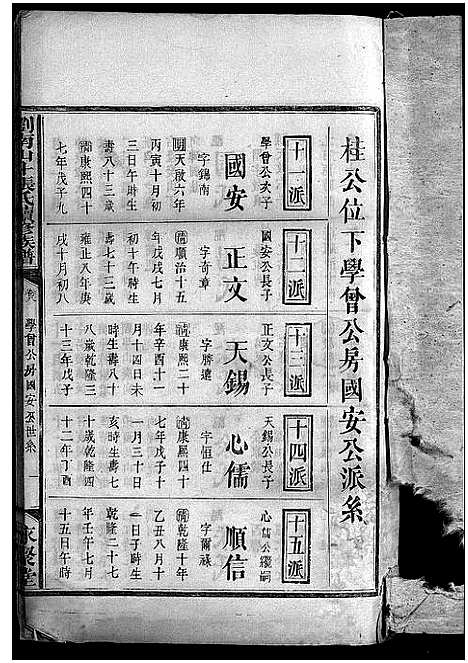 桂公位下學曾公房國安公派系
十一派
學曾公次子
國安
字錫南
明天啟六年
丙寅十月初
三日午時生
壽八十三歲
清康熙四十
七年戊子九
十二派
國安公長子
正文
字奇章
清順治十五
年戊戌七月
初十午時生
壽七十三歲
雍正八年庚
戌十月初八
十三派
正文公長子
天錫
字勝遠
清康熙二十
年辛酉十一
月十四日未
時生壽八十
八歲乾隆三
十三年戊子
十四派
天錫公長子
心儒
字恒仕
清康熙四十
七年戊子十
一月三十日
亥時生壽七
十歲乾隆四
十二年丁酉
十五派
心儒公繼嗣
順信
字爾祿
清乾隆十年
乙丑八月十
一日子時生
乾隆二十七
年壬午七月
十五日午時
張氏續修族譜
學曾公房國安公世系
一
永聚堂